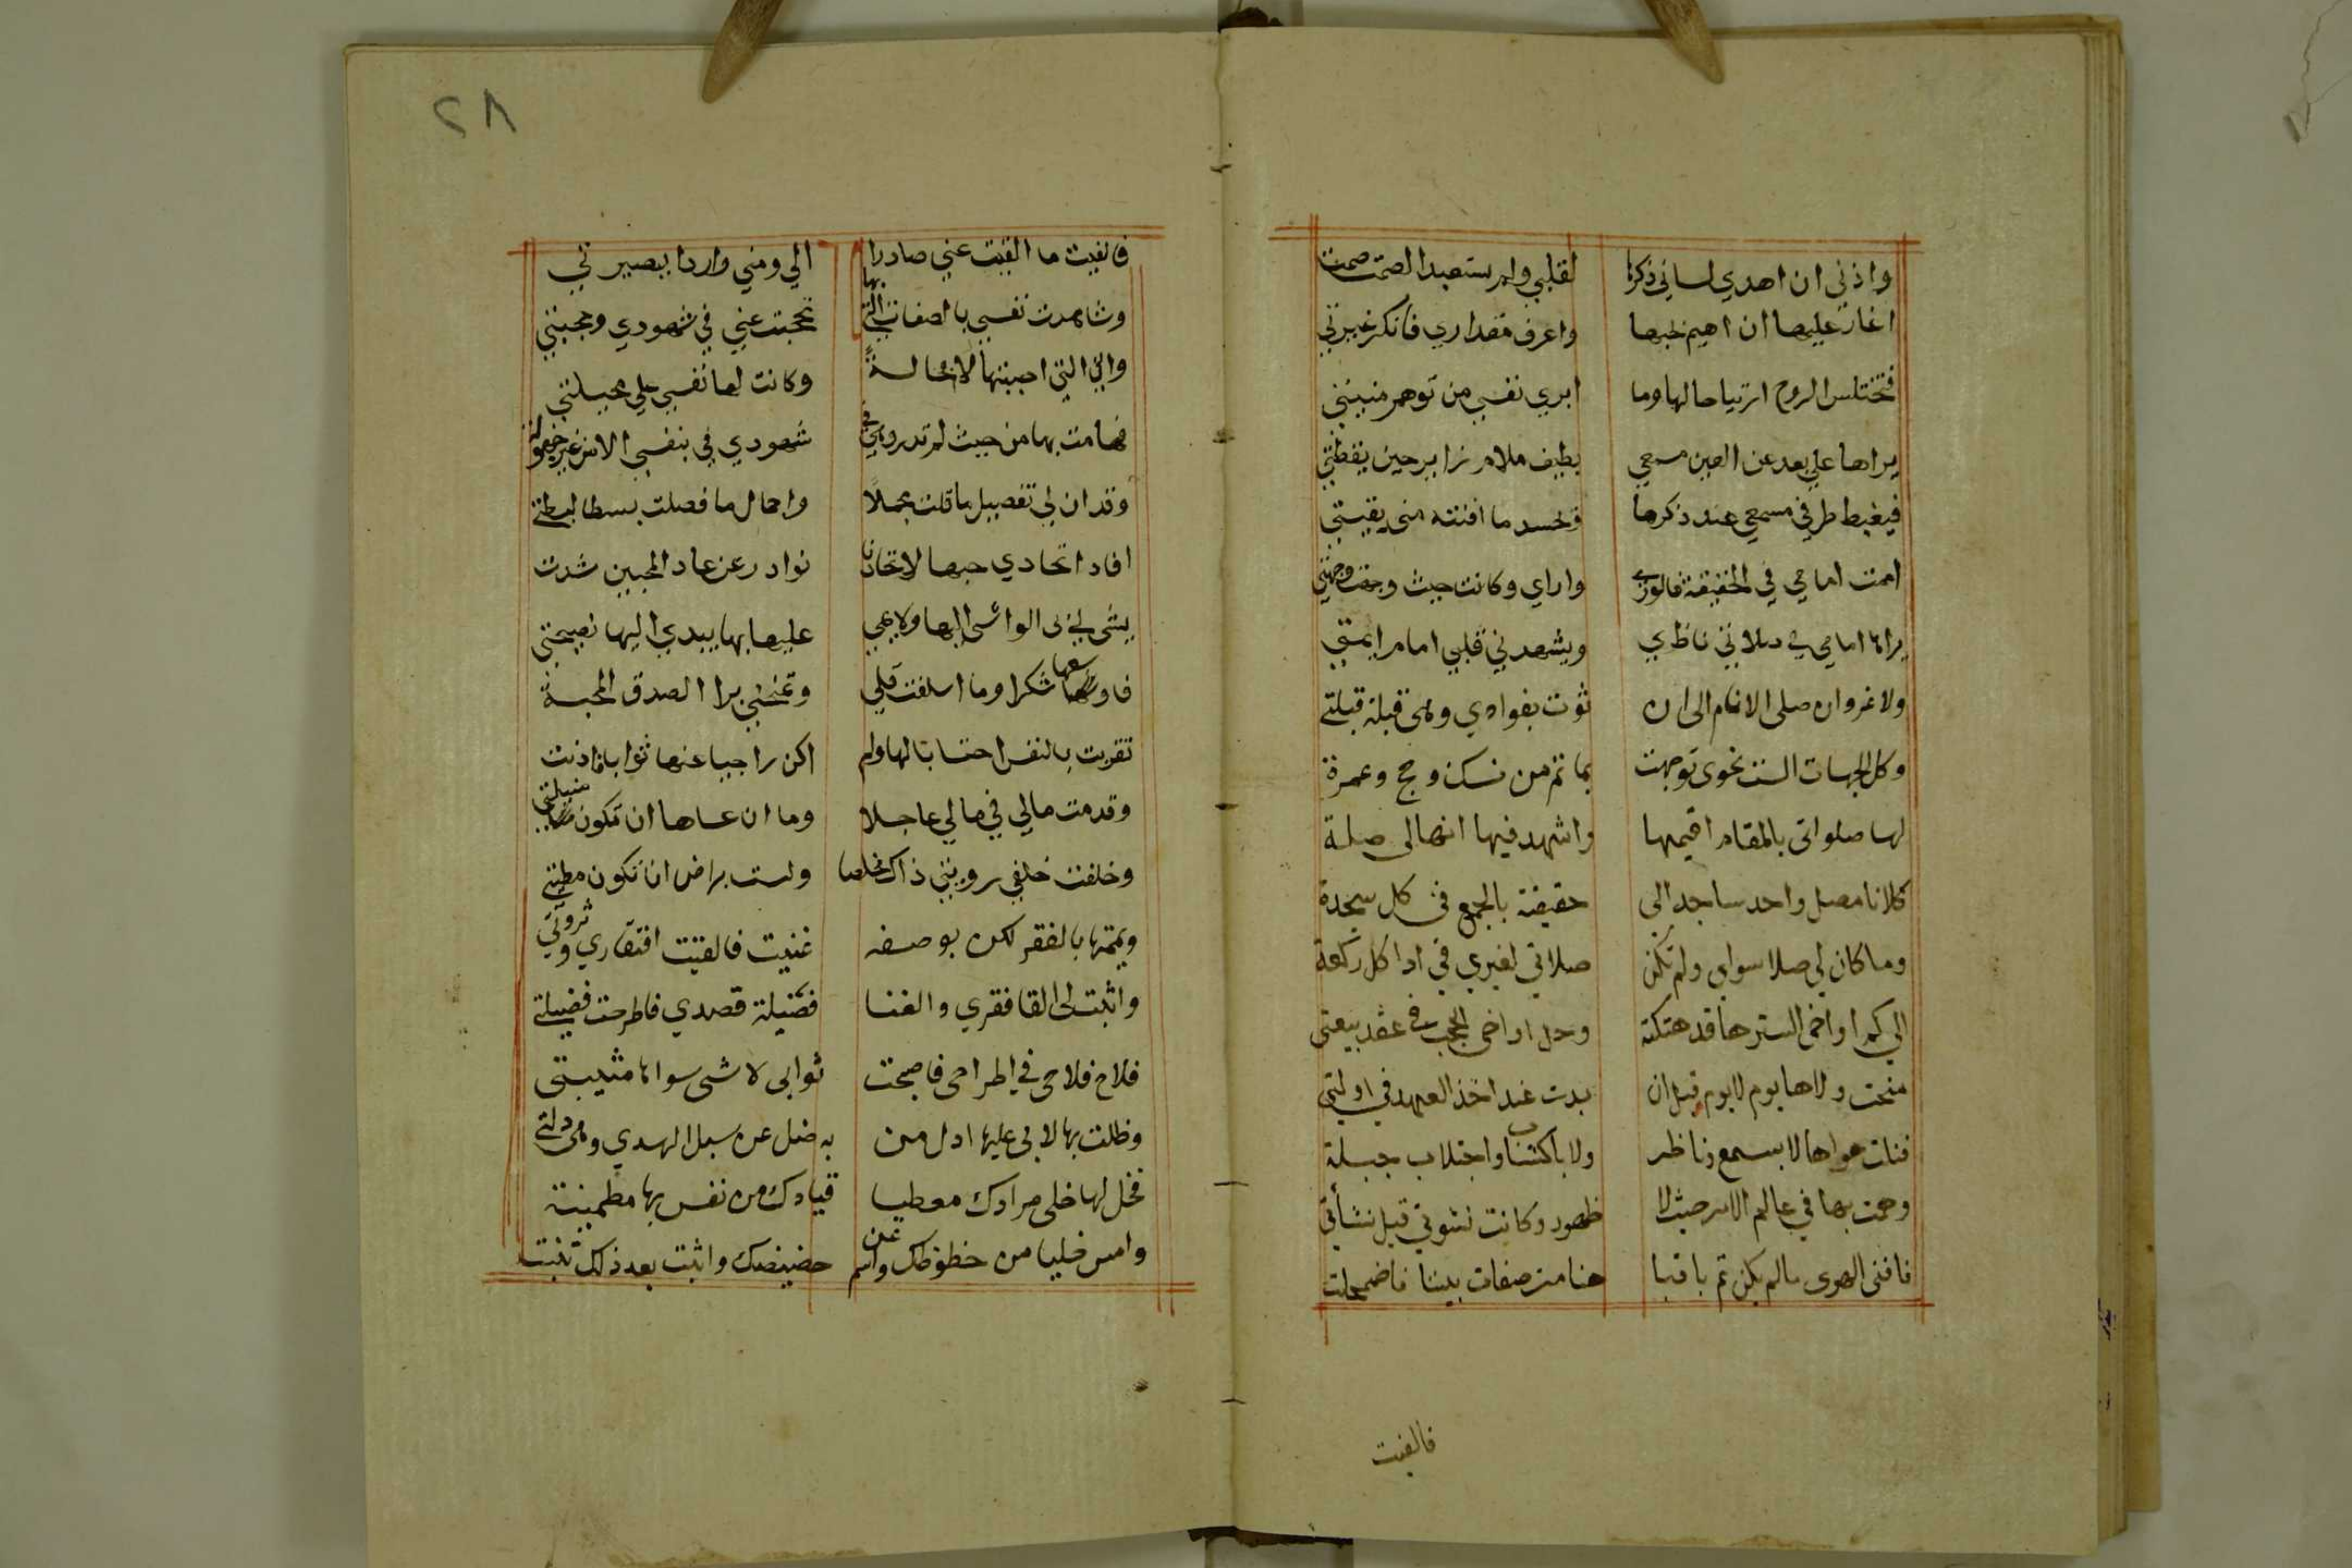 واذني ان اهدي لساني ذكرها لقلبي ولم يستعبد الصمت صمت
اغار عليها ان اهيم بحبها واعرف مقداري فانكر غيرتي
فتختلس الروح ارتياحا لها وما ابري نفسي من توهم منيتي
يراها علي بعد عن العين مسمعي بطيف ملام زاير حين يقظتي
فيغبط طرفي مسمعي عند ذكرها وتحسد ما افنته مني بقيتي
اممت امامي في الحقيقة فالوري وراي وكانت حيث وجهت وجهتي
يراها امامي في صلاتي ناظري ويشهدني قلبي امام ايمتي
ولا غرو ان صلى الانام الى ان ثوت بفوادي وهى قبلة قبلتي
وكل الجهات الست نحوى توجهت بما تم من نسك وحج وعمرة
لها صلواتى بالمقام اقيمها واشهد فيها انها لى صلة
كلانا مصل واحد ساجد الى حقيقته بالجمع فى كل سجدة
وما كان لي صلا سواي ولم تكن صلاتي لغيري في ادا كل ركعة
الي كم اواخى الستر ها قد هتكته وحل اواخى الحجب في عقد بيعتى
منحت ولاها يوم لا يوم قبل ان بدت عند اخذ العهد في اولتي
فنلت هواها لا بسمع وناظر ولا باكتساب واجتلاب جبلة
وهمت بها في عالم الامر حيث لا ظهور وكانت نشوتي قبل نشأتي
فافنى الهوى مالم يكن ثم باقيا هنا من صفات بيننا فاضمحلت
فالفيت
٢٨
فالفيت ما القيت عني صادرا الي ومني واردا ببصيرتي
وشاهدت نفسي بالصفات التي بها تحجبت عني في شهودي وحجبتي
واني التي احببتها لا محالة وكانت لها نفسي علي محيلتي
فهامت بها من حيث لم تدر وهي في شهودي في بنفس الامر غير جهولة
وقد ان لي تفصيل ما قلت مجملا واجمال ما فصلت بسطا لبسطتي
افاد اتخادي حبها لاتحادنا نوادر عن عاد المحبين شدت
يشى لي بى الواشى اليها ولايمي عليها بها يبدي اليها نصيحتي
فاوسعها شكرا وما اسلفت قلي وتمنحني برا لصدق المحبة
تقربت بالنفس احتسابا لها ولم اكن راجيا عنها ثوابا فادنت
وقدمت مالي في مالي عاجلا وما ان عساها ان تكون منيلتي
وخلفت خلفي رويتي ذاك مخلصا ولست براض ان تكون مطيتي
ويممتها بالفقر لكن بوصفه غنيت فالقيت افتقاري وثروتي
واثبت لى القا فقري والغنا فضيلة قصدي فاطرحت فضيلتي
فلاح فلاحى في اطراحى فاصبحت ثوابى لا شى سواها مثيبتى
وظلت بها لا بى عليها ادل من به ضل عن سبل الهدي وهى دلتي
فخل لها خلى مرادك معطيا قيادك من نفس بها مطمينة
وامس خليا من حظوظك واسم عن حضيضك واثبت بعد ذلك تنبت